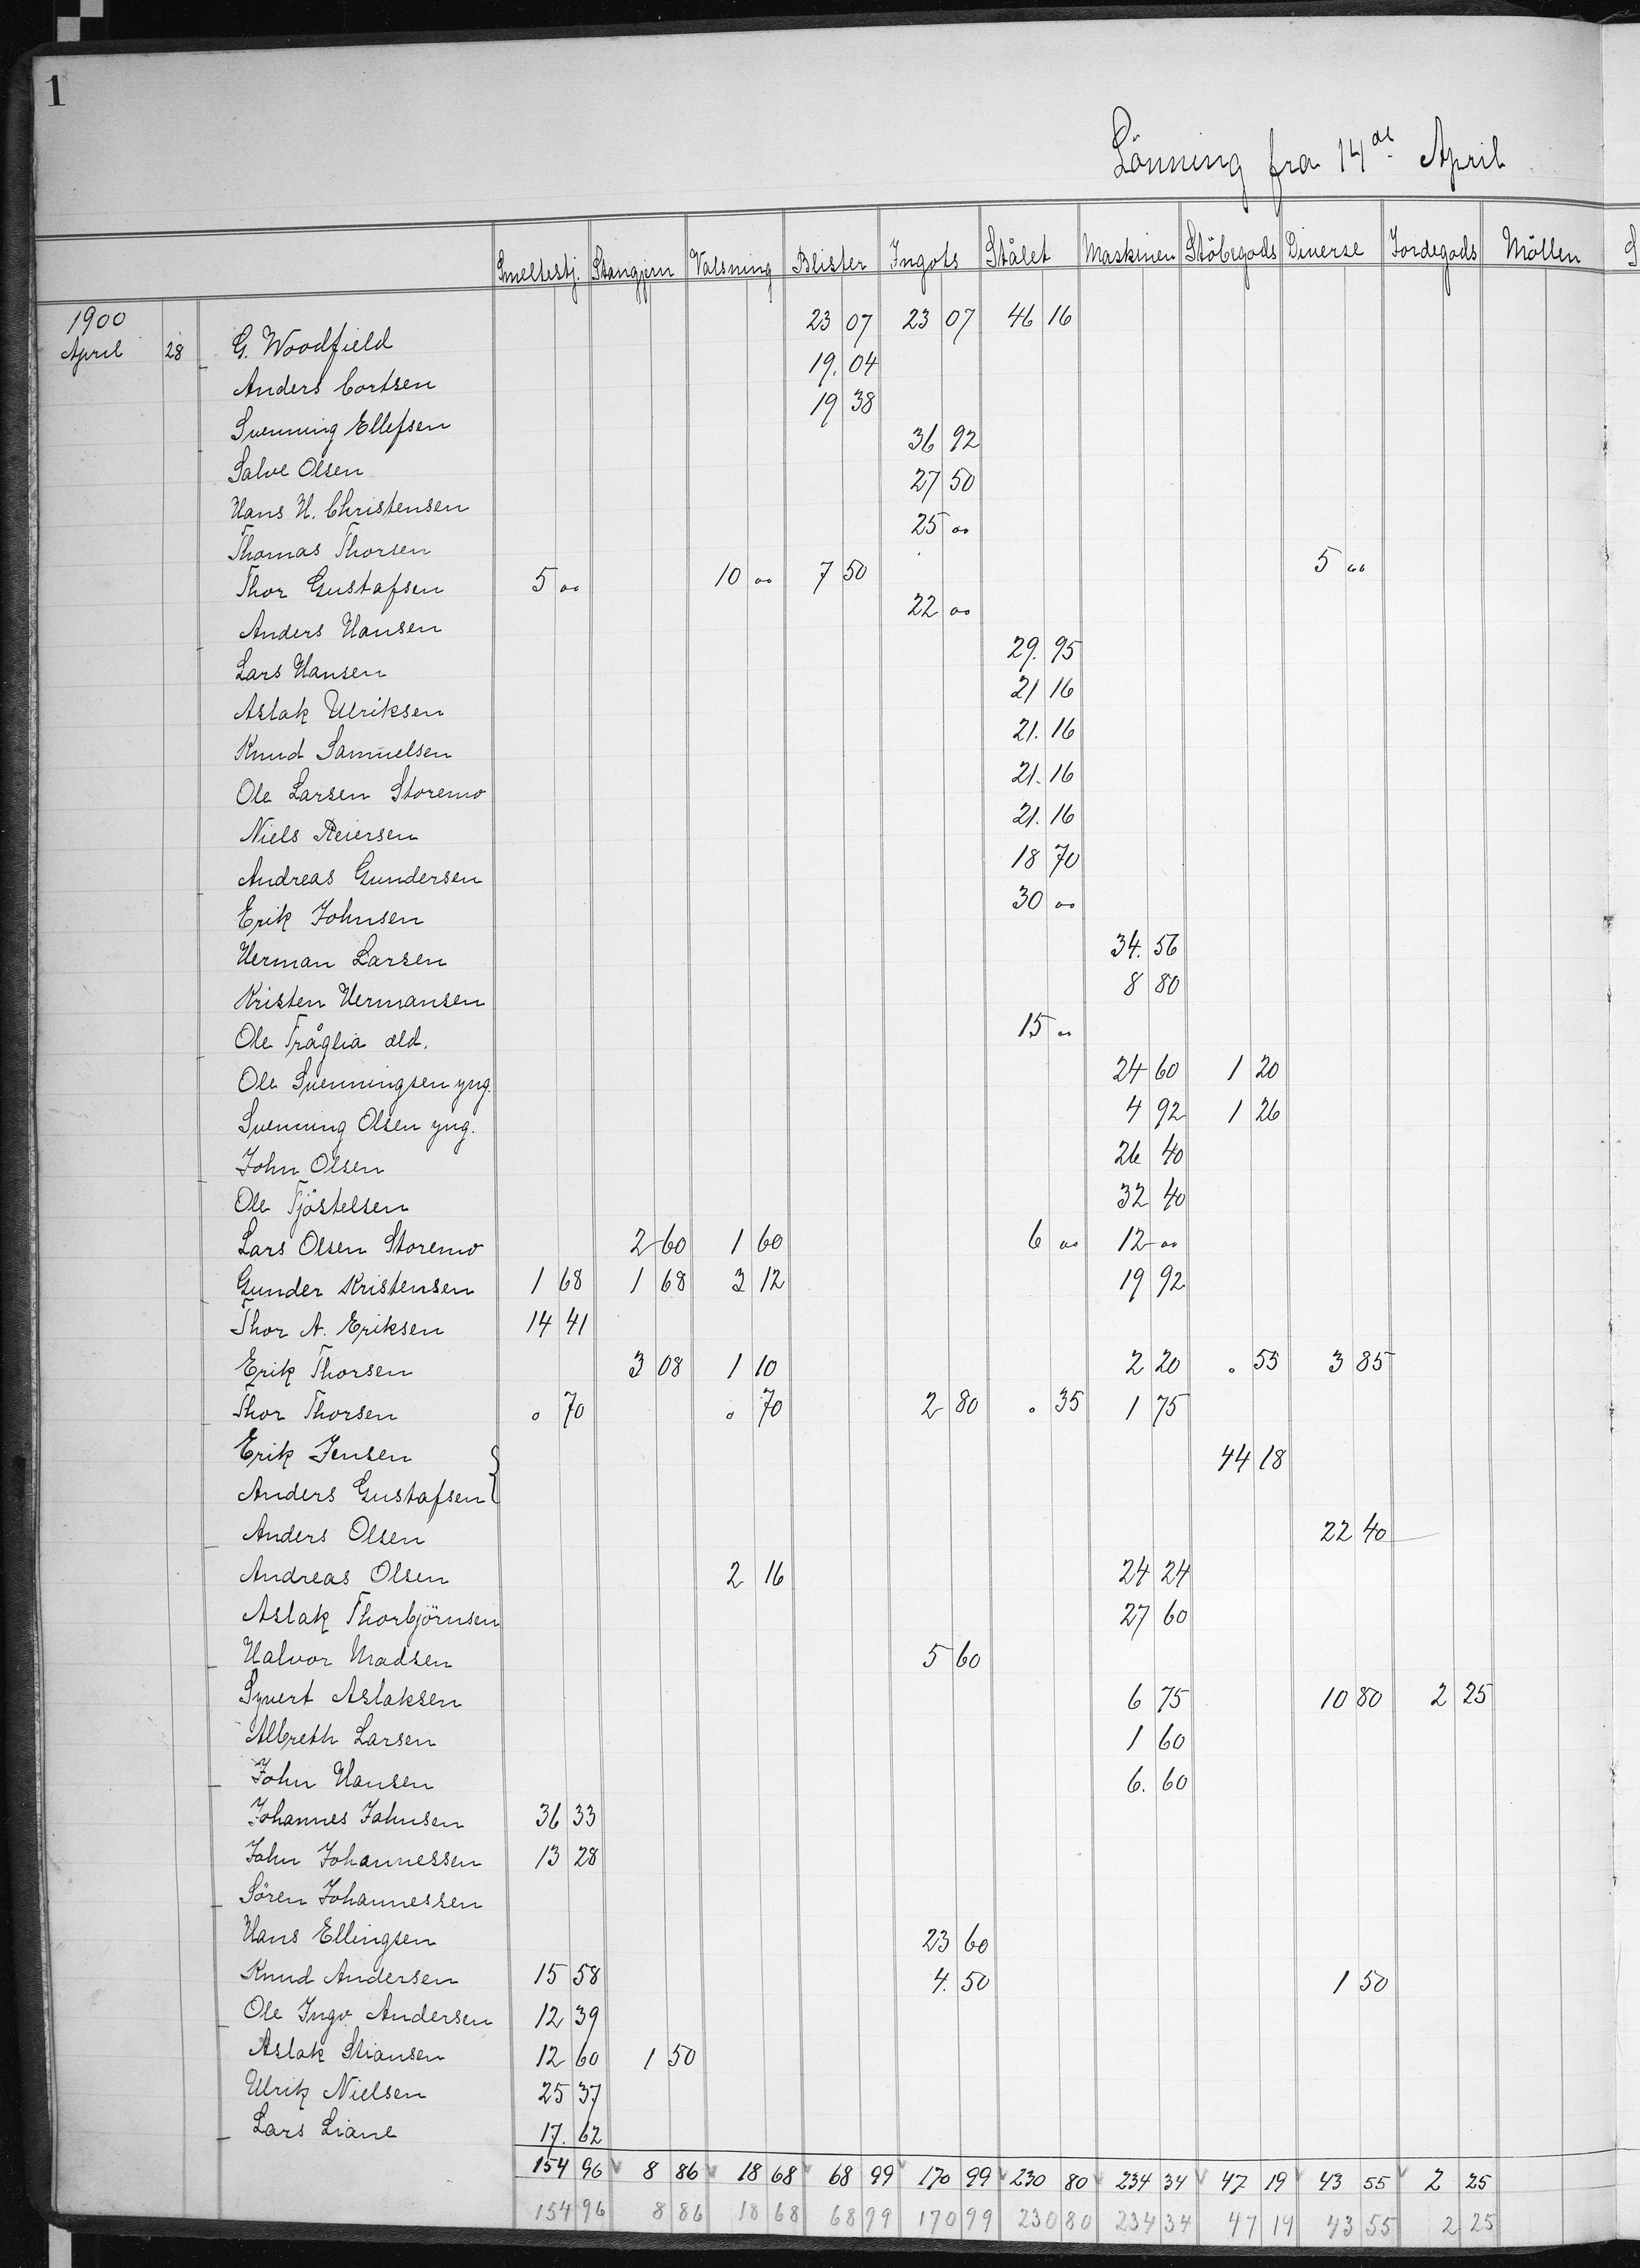 1
Lönning fra 14de April
Smeltestj. Stangjern Valsning Blister Ingots Stålet Maskinen Stöbegods Diverse Jordegods Möllen
1900
April 28 G. Woodfield 23 07 23 07 46 16
Anders Cortsen 19. 04
Svenning Ellefsen 19 38
Salve Olsen 36 92
Hans H. Christensen 27 50
Thomas Thorsen 25 oo
Thor Gustafsen 5 oo 10 oo 7 50 5 oo
Anders Hansen 22 oo
Lars Hansen 29. 95
Aslak Ulriksen 21 16
Knud Samuelsen 21. 16
Ole Larsen Storemo 21. 16
Niels Reiersen 21. 16
Andreas Gundersen 18 70
Erik Johnsen 30 oo
Herman Larsen 34. 56
Kristen Hermansen 8 80
Ole Tråglia æld. 15 oo
Ole Svenningsen yng. 24 60 1 20
Svenning Olsen yng. 4 92 1 26
John Olsen 26 40
Ole Tjöstelsen 32 40
Lars Olsen Storemo 2 60 1 60 6 oo 12 oo
Gunder Kristensen 1 68 1 68 3 12 19 92
Thor A. Eriksen 14 41
Erik Thorsen 3 08 1 10 2 20 o 55 3 85
Thor Thorsen o 70 o 70 2 80 o 35 1 75
Erik Jensen } 44 18
Anders Gustafsen
Anders Olsen 22 40
Andreas Olsen 2 16 24 24
Aslak Thorbjörnsen 27 60
Halvor Madsen 5 60
Syvert Aslaksen 6 75 10 80 2 25
Albreth Larsen 1 60
John Hansen 6. 60
Johannes Johnsen 36 33
John Johannessen 13 28
Sören Johannessen
Hans Ellingsen 23 60
Knud Andersen 15 58 4. 50 1 50
Ole Ingv. Andersen 12 39
Aslak Stiansen 12 60 1 50
Ulrik Nielsen 25 37
Lars Liane 17. 62
154 96 8 86 18 68 68 99 170 99 230 80 234 34 47 19 43 55 2 25
154 96 8 86 18 68 68 99 170 99 230 80 234 34 47 19 43 55 2 25